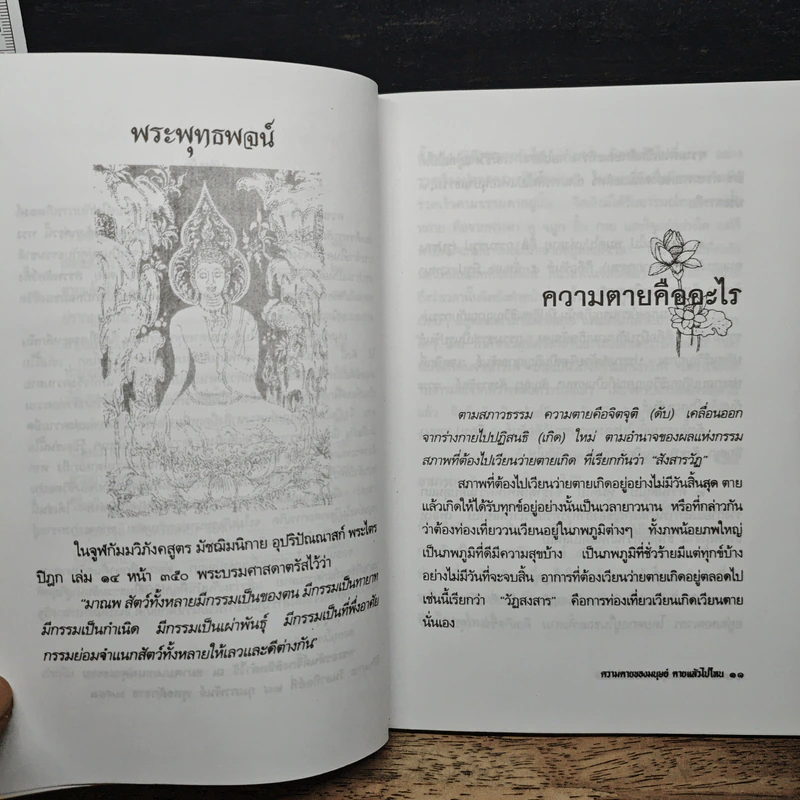 พระพุทธพจน์
ในจูฬกัมมวิภังคสูตร มัชฌิมนิกาย อุปริปัณณาสก์ พระไตร
ปิฎก เล่ม ๑๔ หน้า ๓๕๐ พระบรมศาสดาตรัสไว้ว่า
"มาณพ สัตว์ทั้งหลายมีกรรมเป็นของตน มีกรรมเป็นทายาท
มีกรรมเป็นกำเนิด มีกรรมเป็นเผ่าพันธุ์ มีกรรมเป็นที่พึ่งอาศัย
กรรมย่อมจำแนกสัตว์ทั้งหลายให้เลวและดีต่างกัน"
ความตายคืออะไร
ตามสภาวธรรม ความตายคือจิตจุติ (ดับ) เคลื่อนออก
จากร่างกายไปปฏิสนธิ (เกิด) ใหม่ ตามอำนาจของผลแห่งกรรม
สภาพที่ต้องไปเวียนว่ายตายเกิด ที่เรียกกันว่า "สังสารวัฏ"
สภาพที่ต้องไปเวียนว่ายตายเกิดอยู่อย่างไม่มีวันสิ้นสุด ตาย
แล้วเกิดให้ได้รับทุกข์อยู่อย่างนั้นเป็นเวลายาวนาน หรือที่กล่าวกัน
ว่าต้องท่องเที่ยววนเวียนอยู่ในภพภูมิต่างๆ ทั้งภพน้อยภพใหญ่
เป็นภพภูมิที่ดีมีความสุขบ้าง เป็นภพภูมิที่ชั่วร้ายมีแต่ทุกข์บ้าง
อย่างไม่มีวันที่จะจบสิ้น อาการที่ต้องเวียนว่ายตายเกิดอยู่ตลอดไป
เช่นนี้เรียกว่า "วัฏสงสาร" คือการท่องเที่ยวเวียนเกิดเวียนตาย
นั่นเอง
ความตายของมนุษย์ ตายแล้วไปไหน ๑๑